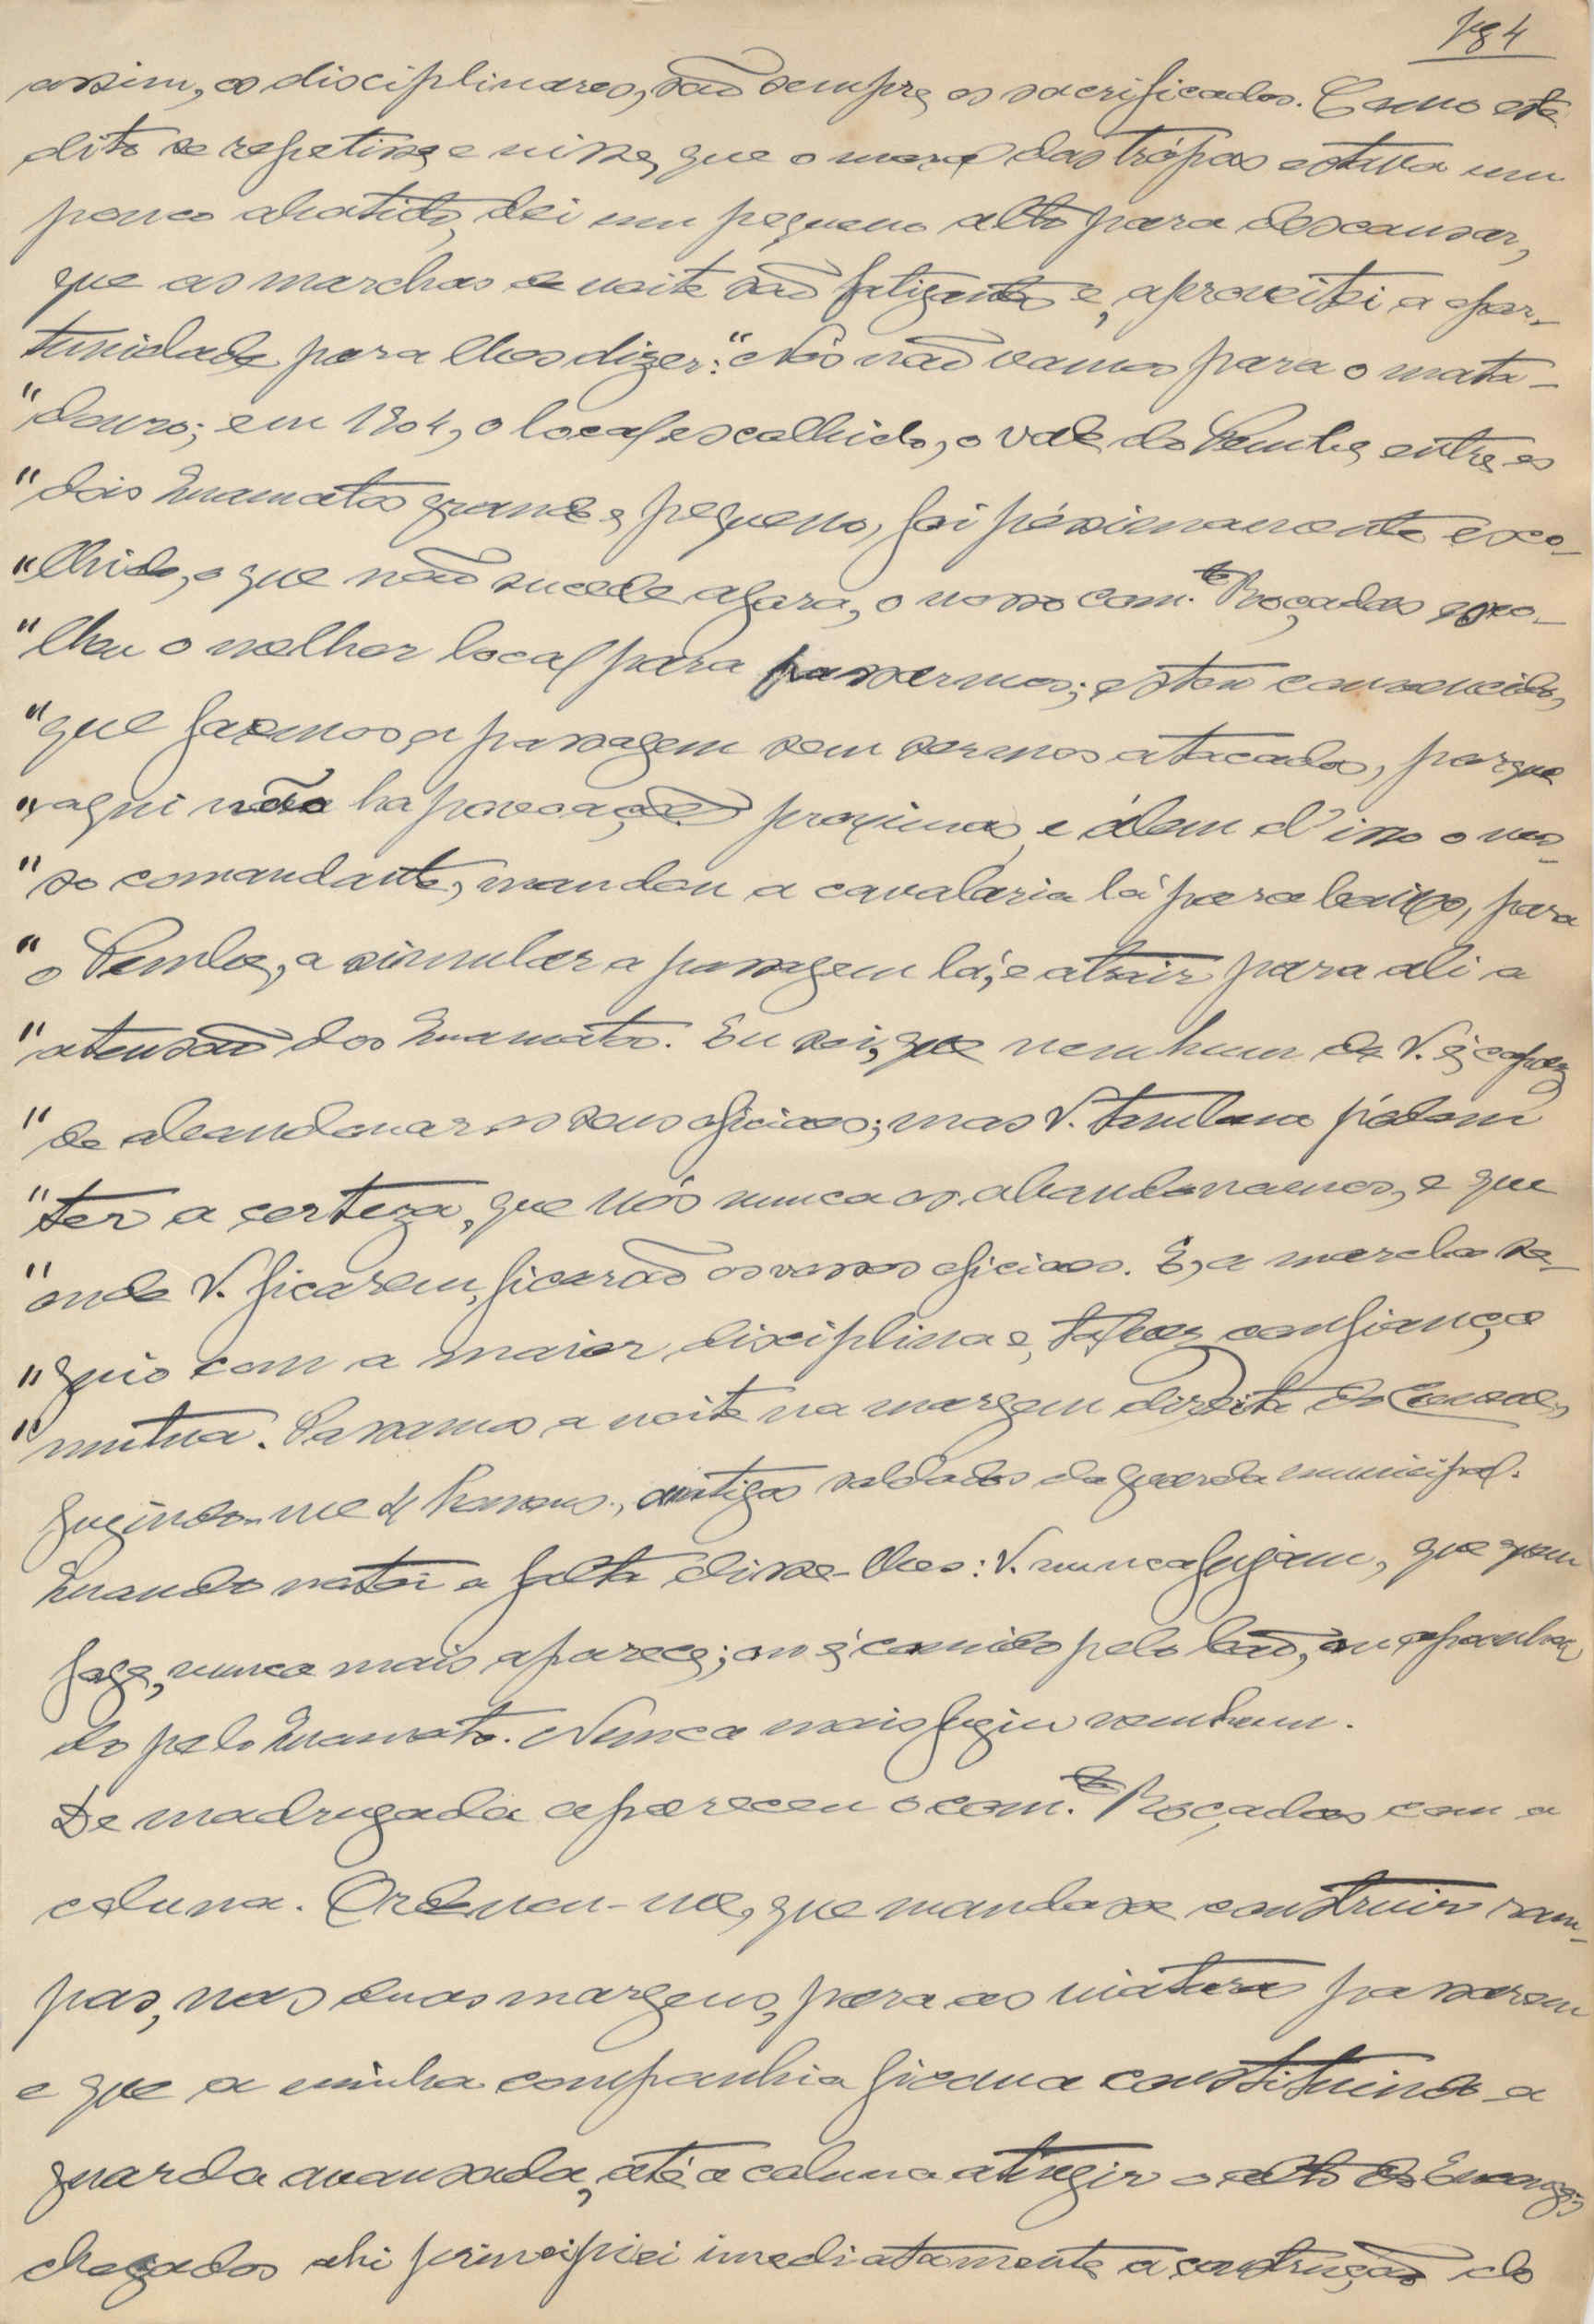 Pg 4
assim, os disciplinares, são sempre os sacrificados. Como este
dito se repetisse e visse, que o moral das trópas estava um
pouco abatido, dei um pequeno alto para descansar,
que as marchas de noite são fatigantes e, aproveitei a opor-
tunidade para lhes dizer: "Nós não vamos para o mata-
"douro; em 1904, o local escolhido, o vale do Pembe, entre os
"dois Cuamatos grande e pequeno, foi péssimamente esco-
"lhido, o que não sucede agora, o nosso com.te Roçadas esco-
"lheu o melhor local para passarmos; estou convencido,
"que faremos a passagem sem sermos atacados, porque
"aqui não ha povoações proximas, e álem d'isso o nos-
"so comandante, mandou a cavalaria lá para baixo, para
"o Pembe, a simular a passagem lá, e atrair para ali a
"atensão dos Cuamatos. Eu sei, que nenhum de V. é capaz
"de abandonar os seus oficiaes; mas V. tambem pódem
"ter a certeza, que nós nunca os abandonaremos, e que
"onde V. ficarem, ficarão os vossos oficiaes. E, a marcha se-
"guio com a maior disciplina e, talvez confiança
"mutua. Passamos a noite na margem direita do Cunene,
fugindo-me 4 homens, antigos soldados da guarda municipal.
Quando notei a falta disse-lhes: V. nunca fujam, que quem
foge, nunca mais aparece; ou é comido pelo leão, ou apanha-
do pelo Cuamato. Nunca mais fugiu nenhum.
De madrugada apareceu o com.te Roçadas com a
coluna. Ordenou-me, que mandasse construir ram-
pas, nas duas margens, para as viaturas passarem
e que a minha companhia ficava constituindo a
guarda avansada, até a coluna atingir o alto do
chegados ahi principiei imediatamente a construção do